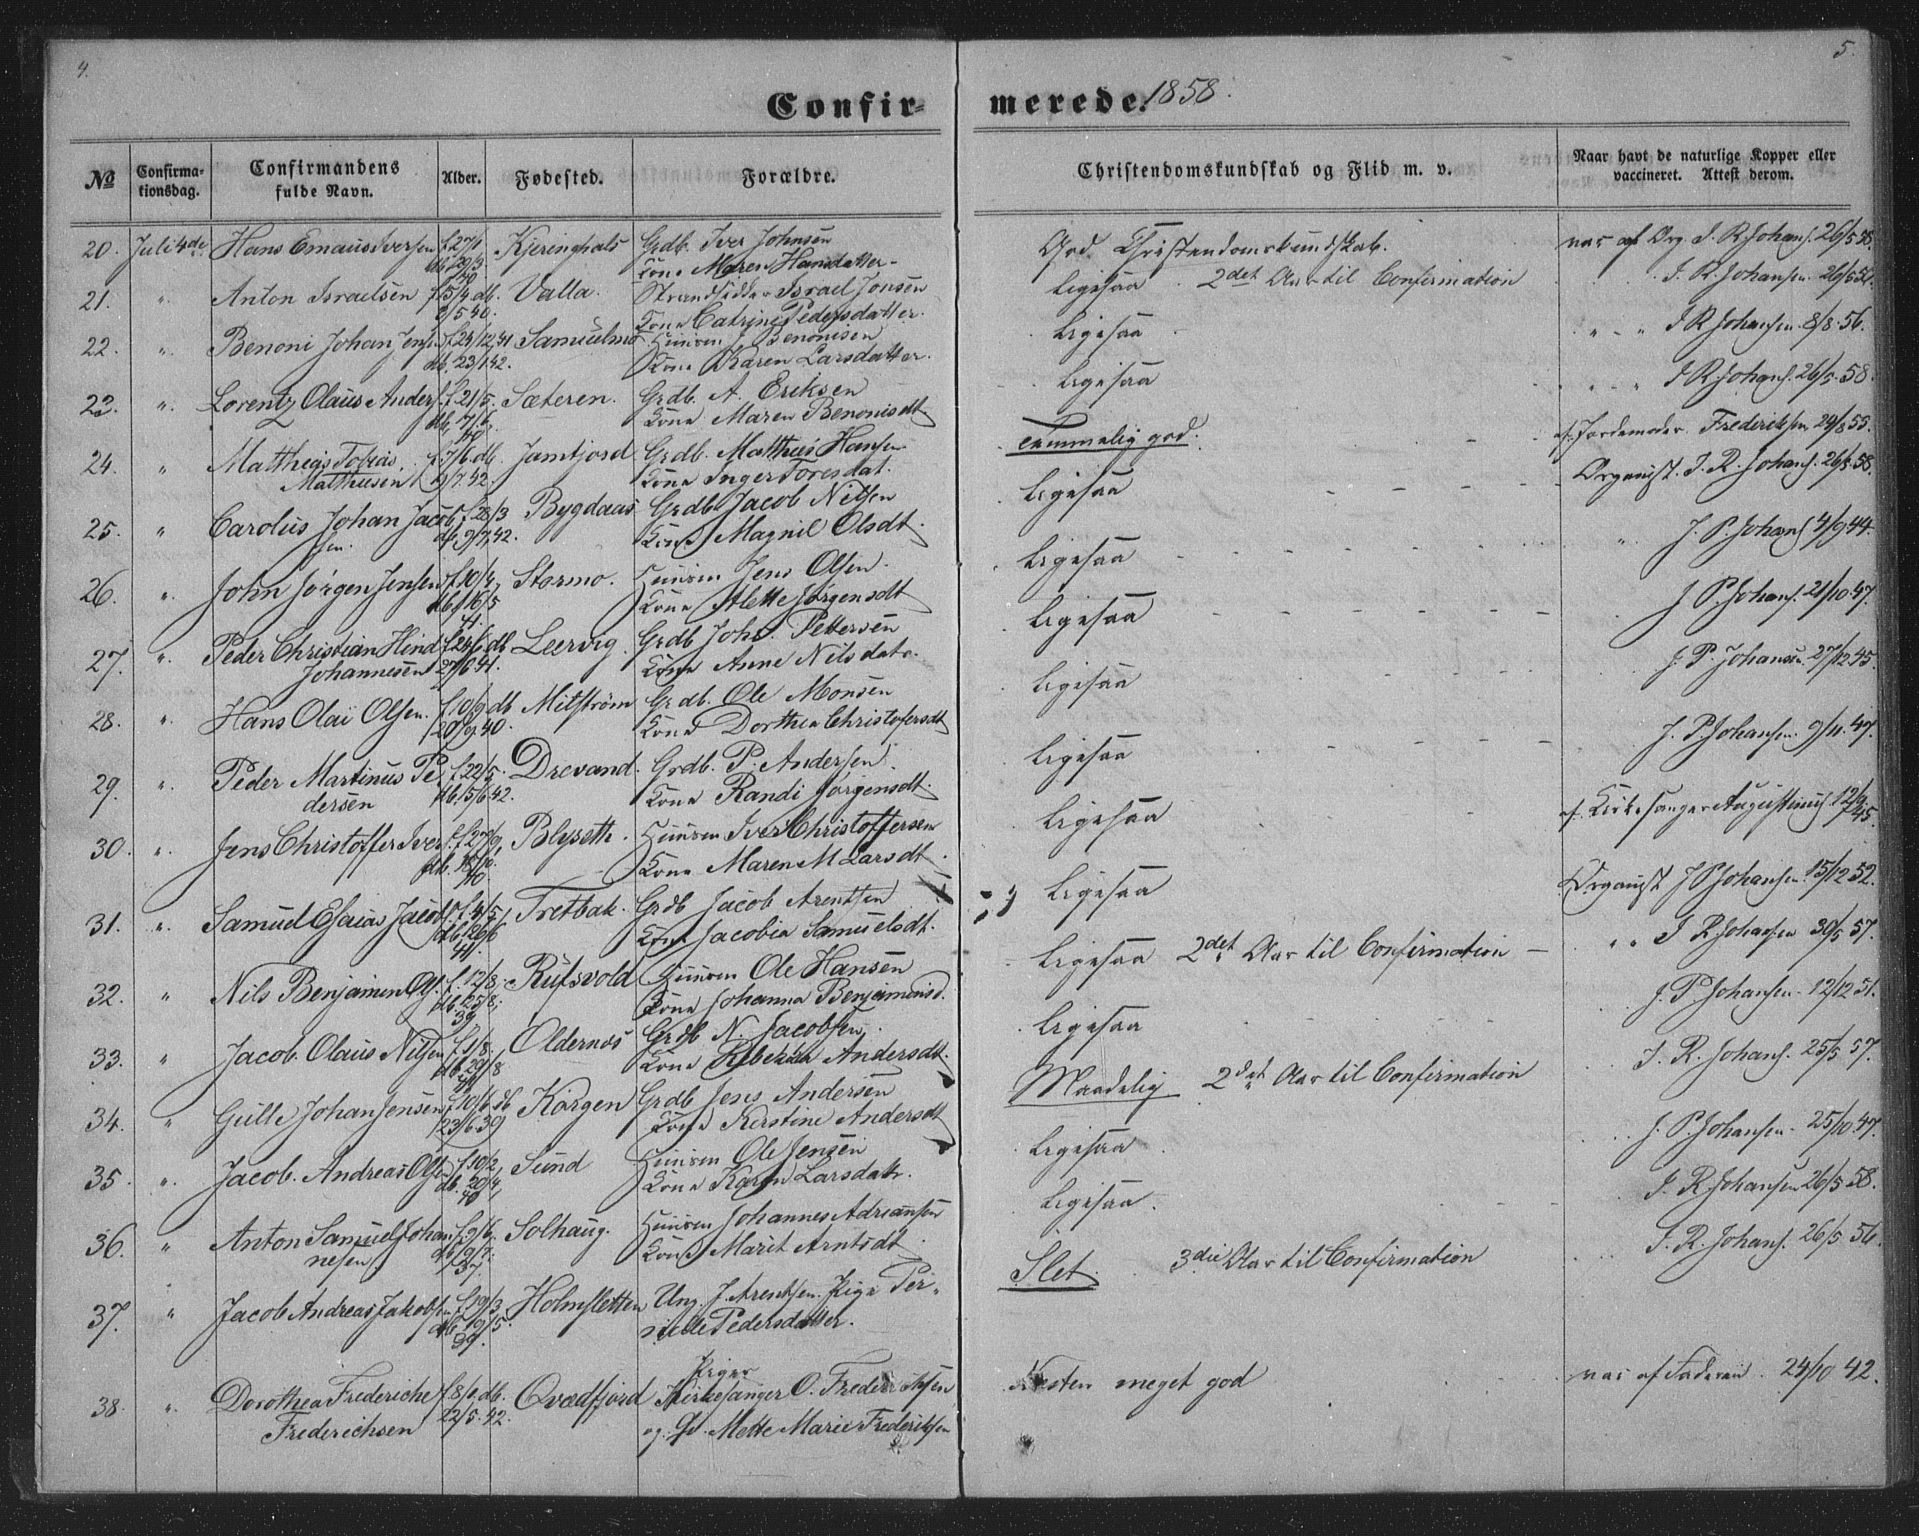 4.
5.
Confirmerede. 1858.
No
Confirmationsdag.
Confirmandens fulde Navn.
Alder.
Fødested.
Forældre.
Christendomskundskab og Flid m. v.
Naar havt de naturlige Kopper eller vaccineret. Attest derom.
20. Juli 4de Hans Emaus Iversen f. 27/1 Kjeringhals Grdb. Iver Johnsen God Christendomskundskab. vac af Org. J. P. Johans. 26/5 58.
db. 29/3 40 Kone Maren Hansdatter
21. " Anton Israelsen f. 5/4. db. Valla. Strandsidder Israel Jonsen Ligesaa 2det Aar til Confirmation J. P. Johansen. 26/5 58.
3/5 40. Kone Catrine Pedersdatter.
22. " Benoni Johan Jensen f. 24/12,41 Samuelmo Huusm J. Benonisen Ligesaa " " J P Johansen 8/8. 56.
db. 23/1 42. Kone Karen Larsdatter.
23. " Lorentz Olaus Anders. f. 21/5. Sæteren. Grdb. A. Eriksen Ligesaa " " J P Johans. 26/5. 58.
db. 7/6 40. Kone Maren Benonisdt
24. " Matthias Tobias f. 7/6 db. Jamtjord Grdb. Mathias Hansen Temmelig god. af Jordemoder Frederiksen 24/8 53.
Mathiesen 3/7. 42. Kone Inger Toresdat.
25. " Carolus Johan Jacob f. 28/3 Bygdaas Grdb Jacob Nilsen Ligesaa Organist. J. P. Johans. 26/5. 58.
sen. db. 9/7. 42. Kone Magnil Olsdt.
26. " John Jørgen Jensen f. 10/4, Stormo. Huusm Jens Olsen. Ligesaa " J. P. Johans 4/9 44.
db. 16/5 41. Kone Alette Jørgensdt
27. " Peder Christian Hind f. 24/6. db Leervig. Grdb Johs. Pettersen Ligesaa J. P. Johans. 21/10. 47.
Johannesen 27/6 41. Kone Anne Nilsdatr.
28. " Hans Olai Olsen. f. 10/9. db Mitstrøm Grdb. Ole Monsen Ligesaa J. P. Johansen. 27/12 45.
20/9. 40. Kone Dorthea Christofersdt
29. " Peder Martinus Pe f. 22/5. Drevand. Grdb. P. Andersen Ligesaa J. P. Johansen. 9/11. 47.
dersen db. 15/6 42. Kone Randi Jørgensdt.
30. " Jens Christoffer Iver f. 27/9, Blyseth. Huusm Iver Christoffersen Ligesaa af Kirkesanger Augustinus. 12/9 45.
db. 18/10. 40 Kone Maren M Larsdt
31. " Samuel Esaias Jacobs. f. 4/5, Tretbak. Grdb Jacob Arentsen Ligesaa Organist J P Johansen. 15/12 52.
db. 26/6 41. Kone Jacobia Samuelsdt.
32. " Nils Benjamin Ols. f. 12/8. Rufsvold Huusm Ole Hansen Ligesaa 2det Aar til Confirmation " " J P. Johansen 30/5 57.
db. 25/8. 39 Kone Johanna Benjaminsd.
33. " Jacob Olaus Nilsen f. 1/8. Oldernes Grdb N. Jacobsen. Ligesaa J. P Johansen. 12/12 51.
db. 29/8 Kone Rebekka Andersdt.
34. " Gulle Johan Jensen f. 10/6. db Korgen Grdb Jens Andersen Maadelig 2det Aar til Confirmation J. P. Johans. 25/5 57.
23/6 39 Kone Kerstine Andersdt
35. " Jacob. Andreas Ols f. 10/2, Sund Huusm Ole Jensen Ligesaa J. P. Johansen. 25/10. 47.
db. 20/4, 40 Kone Karen Larsdatr.
36. " Anton Samuel Johan f. 9/6. Solhaug. Huusm Johannes Adriansen Ligesaa. J. P. Johansen 26/5 58.
nesen db. 9/7. 37. Kone Marit Arntsdt
37. " Jacob Andreas Jakobsen f. 19/3 Holmsletten Ung. J. Arentsen. Pige Per- Slet. 3die Aar til Confirmation J. P. Johans. 26/5 56.
db. 19/5. 39. nelle Pedersdatter.
Piger
38. " Dorothea Frederiche f. 8/6. db. Qvædfjord Kirkesanger O. Frederiksen Næsten meget god vac af Faderen 24/10 42.
Frederichsen 22/5. 42. og Mette Marie Frederiksen